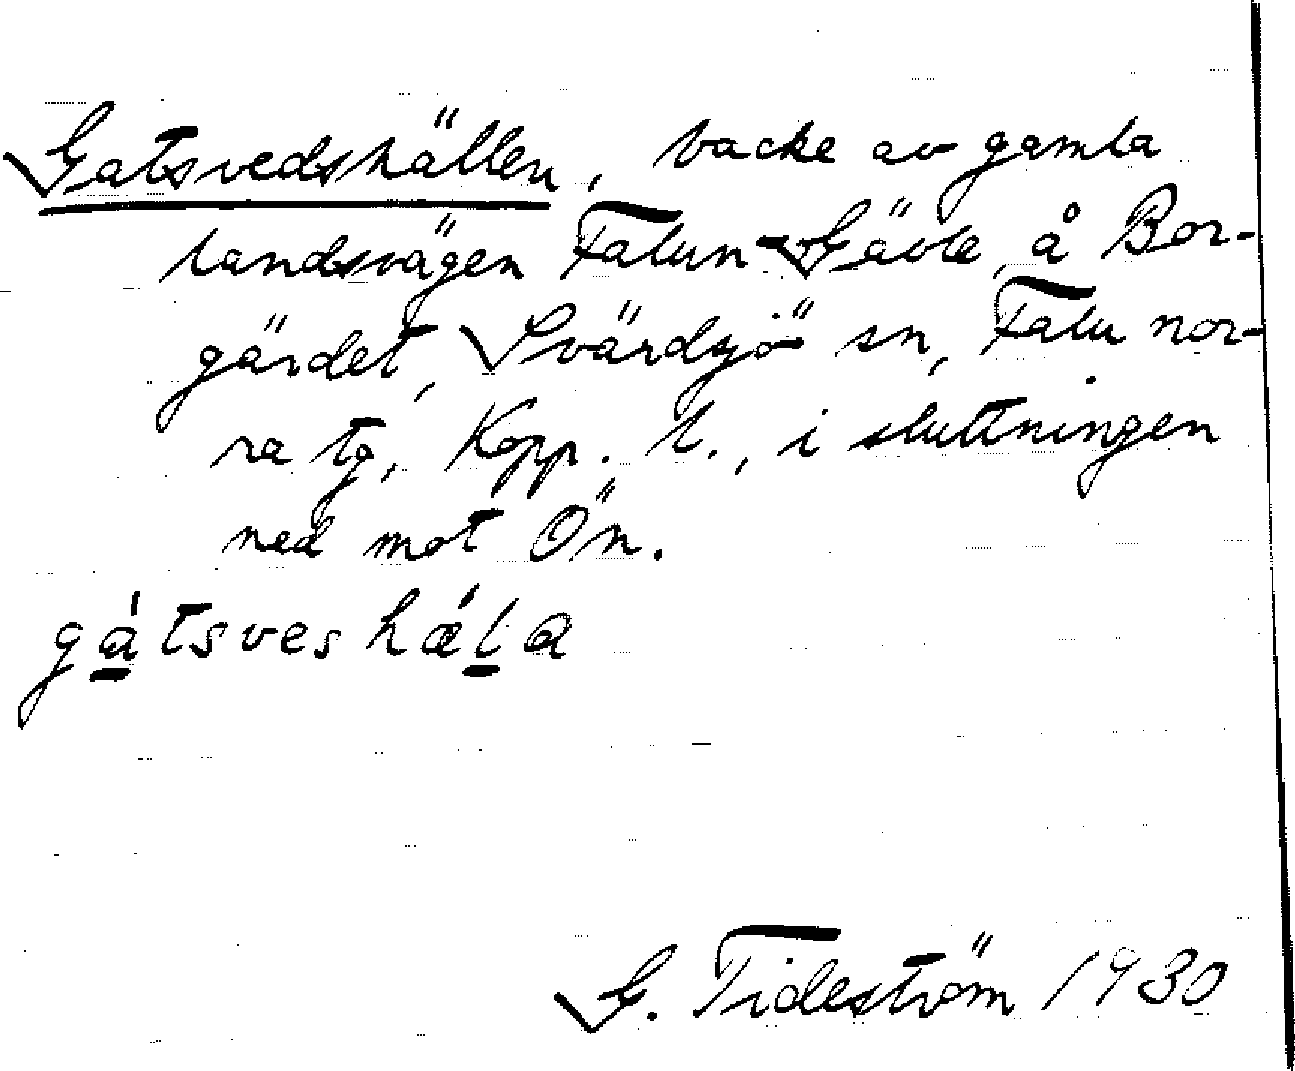 Gatsvedshällen, backe av gamla
landsvägen Falun-Gävle, å Bor-
gärdet, Svärdsjö sn, Falu nor-
ra tg, Kopp. l., i sluttningen
ned mot Ön.
gátsveshǽla
G. Tideström 1930